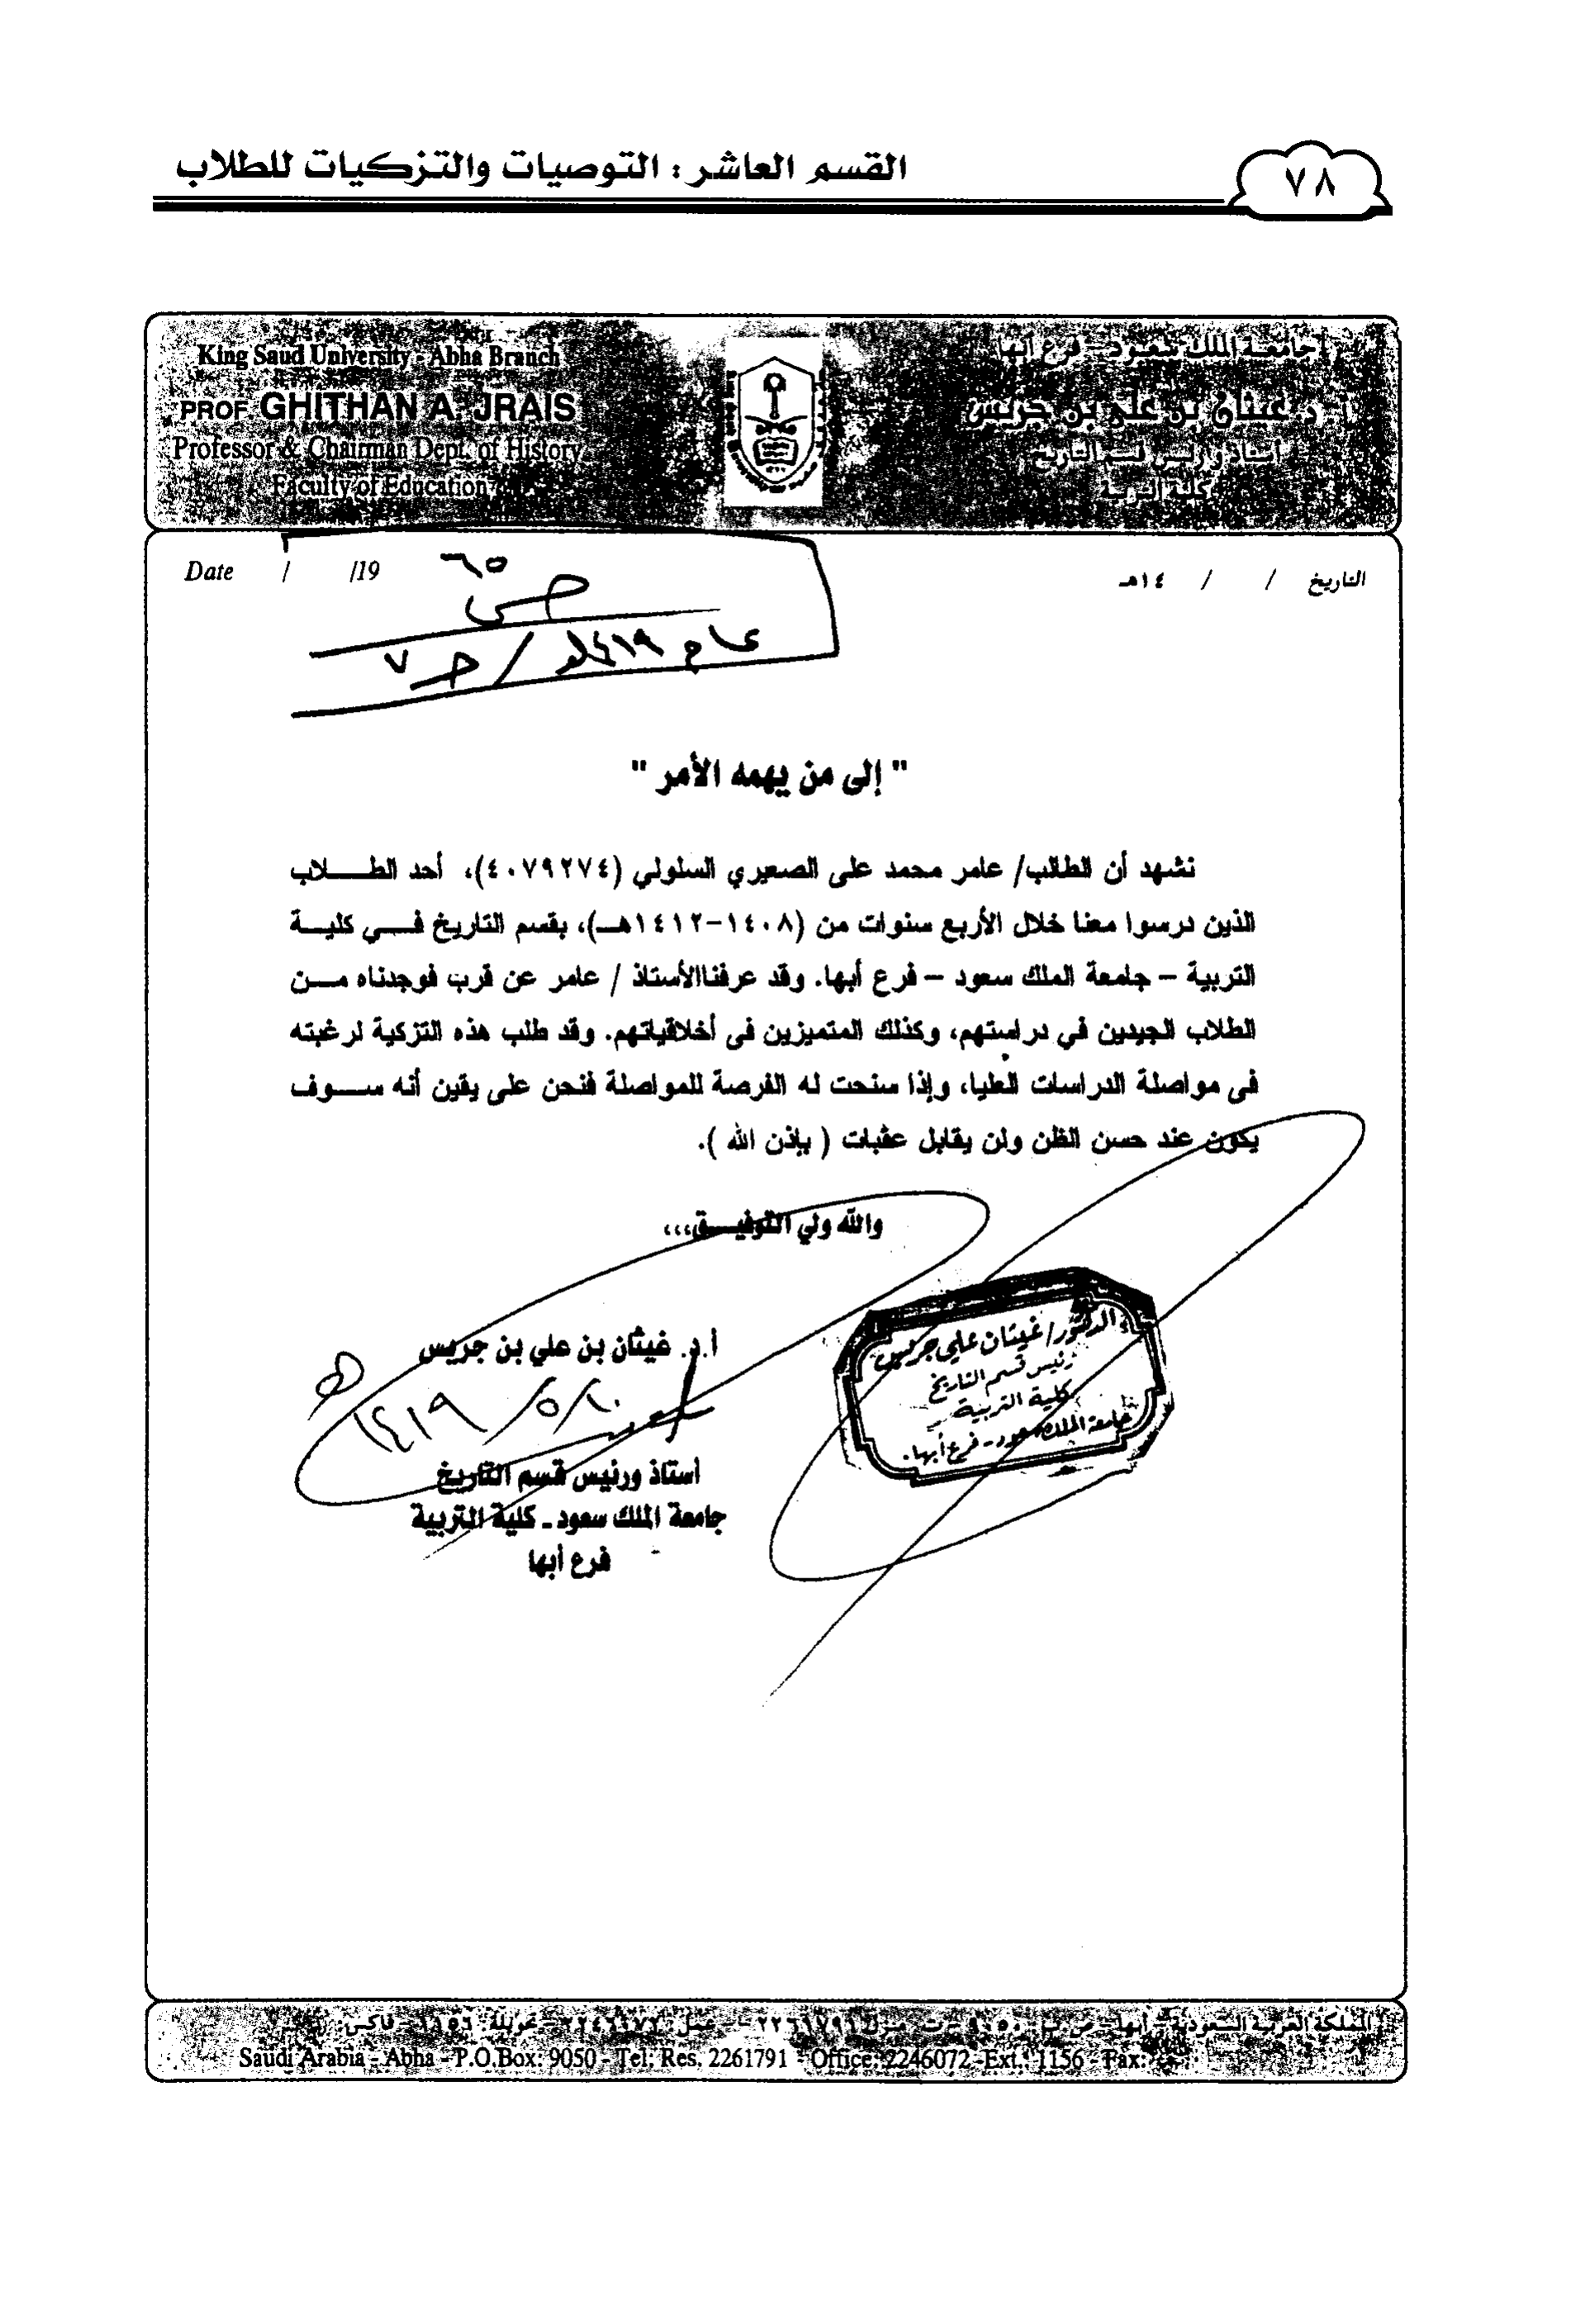 القسم العاشر : التوصيات والتزكيات للطلاب
٧٨
King Saud University - Abha Branch
PROF GHITHAN A. JRAIS
Professor & Chairman Dept. of History
Faculty of Education
جامعة الملك سعود - فرع أبها
أ. د. غيثان بن علي بن جريس
أستاذ ورئيس قسم التاريخ
كلية التربية
Date / /19
التاريخ / / ١٤هـ
٦٥
ص
عام ١٤١٩هـ / ص ٧
" إلى من يهمه الأمر "
نشهد أن الطالب/ عامر محمد على الصعيري السلولي (٤٠٧٩٢٧٤)، أحد الطـــلاب
الذين درسوا معنا خلال الأربع سنوات من (١٤٠٨-١٤١٢هـ)، بقسم التاريخ فـــي كليـة
التربية – جامعة الملك سعود – فرع أبها. وقد عرفناالأستاذ / عامر عن قرب فوجدناه مـــن
الطلاب الجيدين في دراستهم، وكذلك المتميزين فى أخلاقياتهم. وقد طلب هذه التزكية لرغبته
فى مواصلة الدراسات العليا، وإذا سنحت له الفرصة للمواصلة فنحن على يقين أنه ســـوف
يكون عند حسن الظن ولن يقابل عقبات ( بإذن الله ).
والله ولي التوفيـــق،،،
أ.د. غيثان بن علي بن جريس
١٤١٩/٥/٢٠ هـ
أستاذ ورئيس قسم التاريخ
جامعة الملك سعود ـ كلية التربية
فرع أبها
الدكتور/ غيثان علي جريس
رئيس قسم التاريخ
كلية التربية
جامعة الملك سعود - فرع أبها.
المملكة العربية السعودية - أبها - ص ب : ٩٠٥٠ - ت منزل ٢٢٦١٧٩١ - عمل : ٢٢٤٦٠٧٢ - تحويلة : ١١٥٦ - فاكس :
Saudi Arabia - Abha - P.O.Box: 9050 - Tel: Res. 2261791 - Office: 2246072 -Ext.: 1156 - Fax: